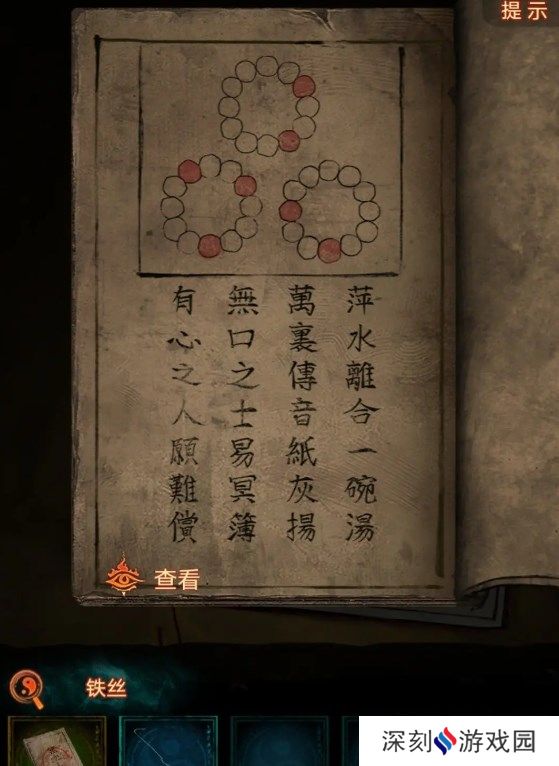 提示
萍水離合一碗湯
萬裏傳音紙灰揚
無口之士易冥簿
有心之人願難償
查看
铁丝
深刻游戏园